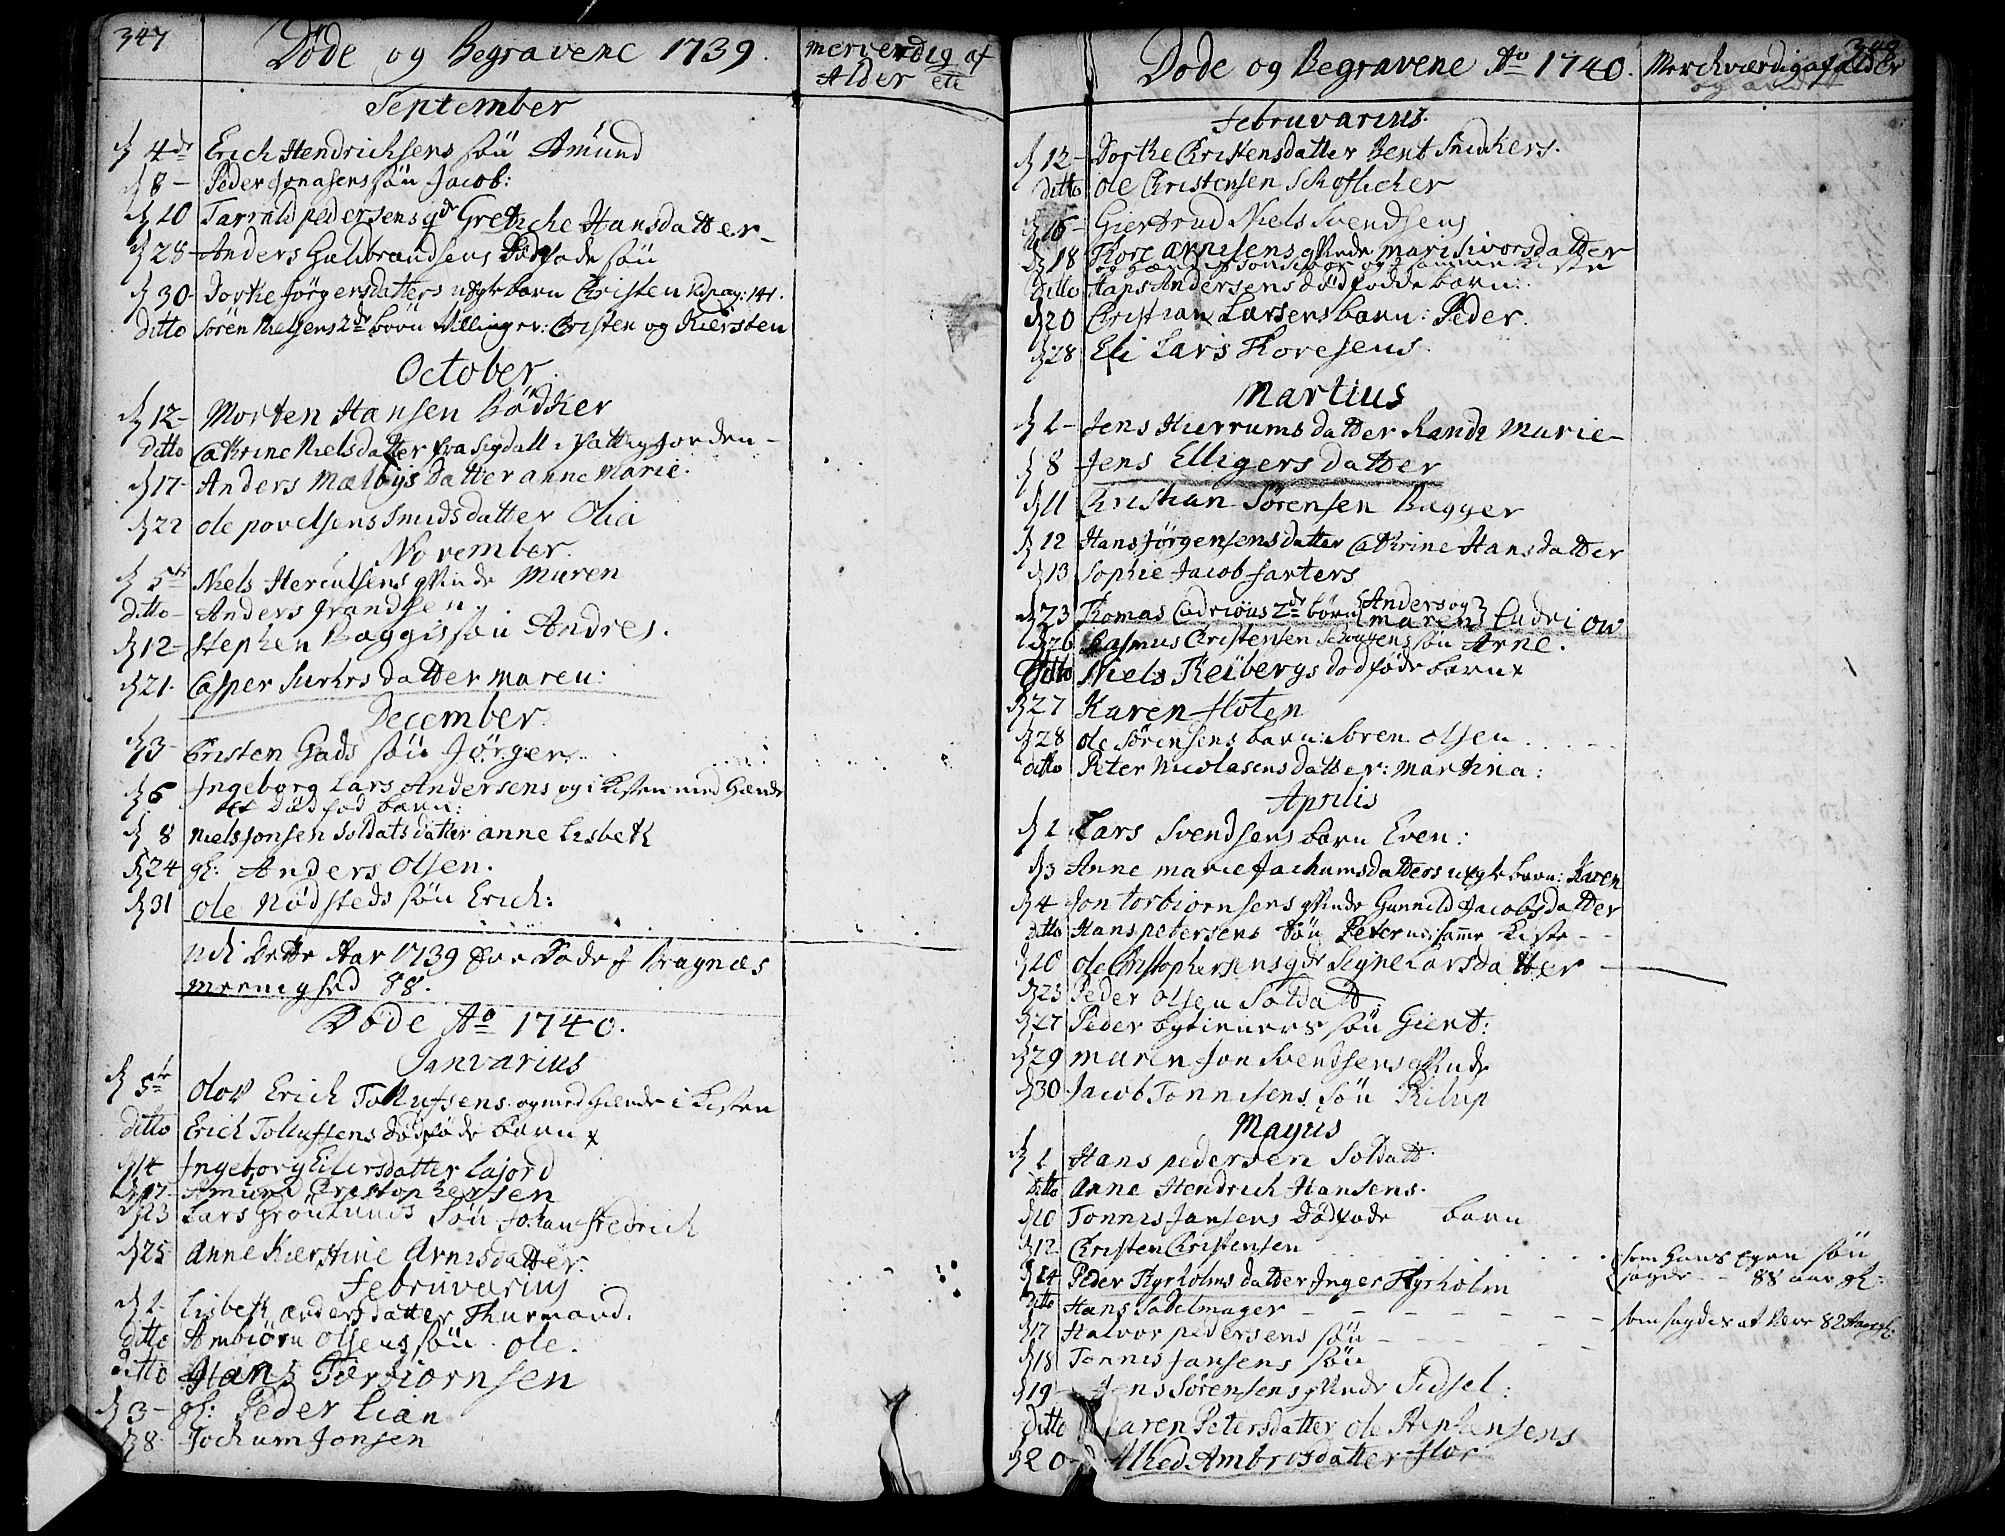 347
Døde og Begravene 1739.
merverdig af
Alder etc
September
d 4de Erich Hendrichsens søn Amund
d 8 – Peder Jonasens søn Jacob:
d 20 Tarrald pedersens Grethche Hansdatter –
d 28 – Anders Gulbrandsens Dødføde søn
d 30 – Dorthe Jörgersdatters uegte barn Christen pag: 141.
ditto Sören Nielsens 2de börn tvillinger: Cristen og Kiersten
October.
d 12 – Morten Hansen Bödker
ditto Cathrine Nielsdatter fra Sigdall i fattig jorden –
d 17 – Anders Mælbys Datter anne Marie.
d 22 ole povelsens Smids datter Olia
November.
d 5te Niels Herculsens qvinde Maren
ditto – Anders frandsen
d 12 – Stephen Baggis søn Andres.
d 21. Casper datter maren.
December.
d 3 – Cristen Gads søn Jörgen
d 6 Ingeborg Lars Andersens og i Kisten med Hænde
et dödfød barn:
d 8 Niels Jonsen Soldats datter anne Lisbeth
d 24 gl: Anders Olsen.
d 31 ole Nödsteds søn Erich:
Udi Dette Aar 1739 Ere Døde af Bragnæs
meenighed 88.
Døde Ao 1740.
Janvarius
d 5te Olov Erich Tollufsens og med Hænde i Kisten
ditto Erich Tollufsens Dødføde barn
d 14 Ingeborg Eilersdatter Lajord
d 17 – Amund Christophersen
d 23 Lars Grönlunds Søn Johan fredrich
d 25 Anne Kierstine Arnisdatter.
Februvarius
d 2 – Lisbeth andersdatter Thurmand.
ditto Ambiörn Olsens søn ole.
ditto Hans Torbiörnsen
d 3 – gl: Peder Lian
d 8 – Jochum Jonsen
Døde og Begravene Ao 1740.
Merckværdig af alder
Februvarius.
d 12 – Dorthe Christensdatter Bent Snidkers.
ditto ole Christensen Skoflicker
d 16 – Giertrud Niels Svendsens
d 18 Thore Arnisens qvinde mari Sivorsdatter
ditto Hans Andersens dödfødde barn:
d 20 Christian Larsens barn: Peder.
d 28 Eli Lars Thoresens.
Martius
d 2 – Jens Hierrums datter Randi Marie –
d 8 Jens Elligers datter
d 11 Christian Sörensen Bagger
d 12 Hans Jörgensens datter Cathrine Hansdatter
d 13 Sophie Jacob farters
d 23 Thomas Cudriows 2de börn {Anders og} {maren} Cudriow
d 26 Rasmus Christensen søn Arne.
ditto Niels Reibergs dødføde barn
d 27 Karen floten
d 28 ole Sörensens barn: Sören olsen
ditto Peter Nicolasens datter: Martina:
Aprilis
d 1 Lars Svendsens barn Even:
d 3 Anne marie Jachumsdatters uegte barn: Karen
d 4 Jon Torbiornsens qvinde Gunnild Jacobsdatter
ditto Hans petersens søn Peter udi samme Kiste –
d 20 ole Christophersens Signe Larsdatter
d 23 Peder Olsen Soldatt
d 27 Peder bytieners søn Giert:
d 29 maren Jon Svendsens qvinde
d 30 Jacob Tönnisens søn Pilup
Mayus
d 1 Hans pedersen Soldatt.
ditto Anne Hendrich Hansens.
d 10 Tönnis Jansens dødføde barn
d 12 Christen Christensen
som Hans egen søn
sagde – 88 aar gl:
d 14 Peder Thyrholms datter Inger Thyrholm
ditto Hans Sadelmager – – – – – –
som sagdes at være 82 Aar gl:
d 17 Halvor pedersens søn – – –
d 18 Tönnis Jansens søn
d 19 – Jens Sörensens qvinde Sidsel:
ditto Maren Petersdatter ole Stephensens
d 20 – Ambrosdatter flor